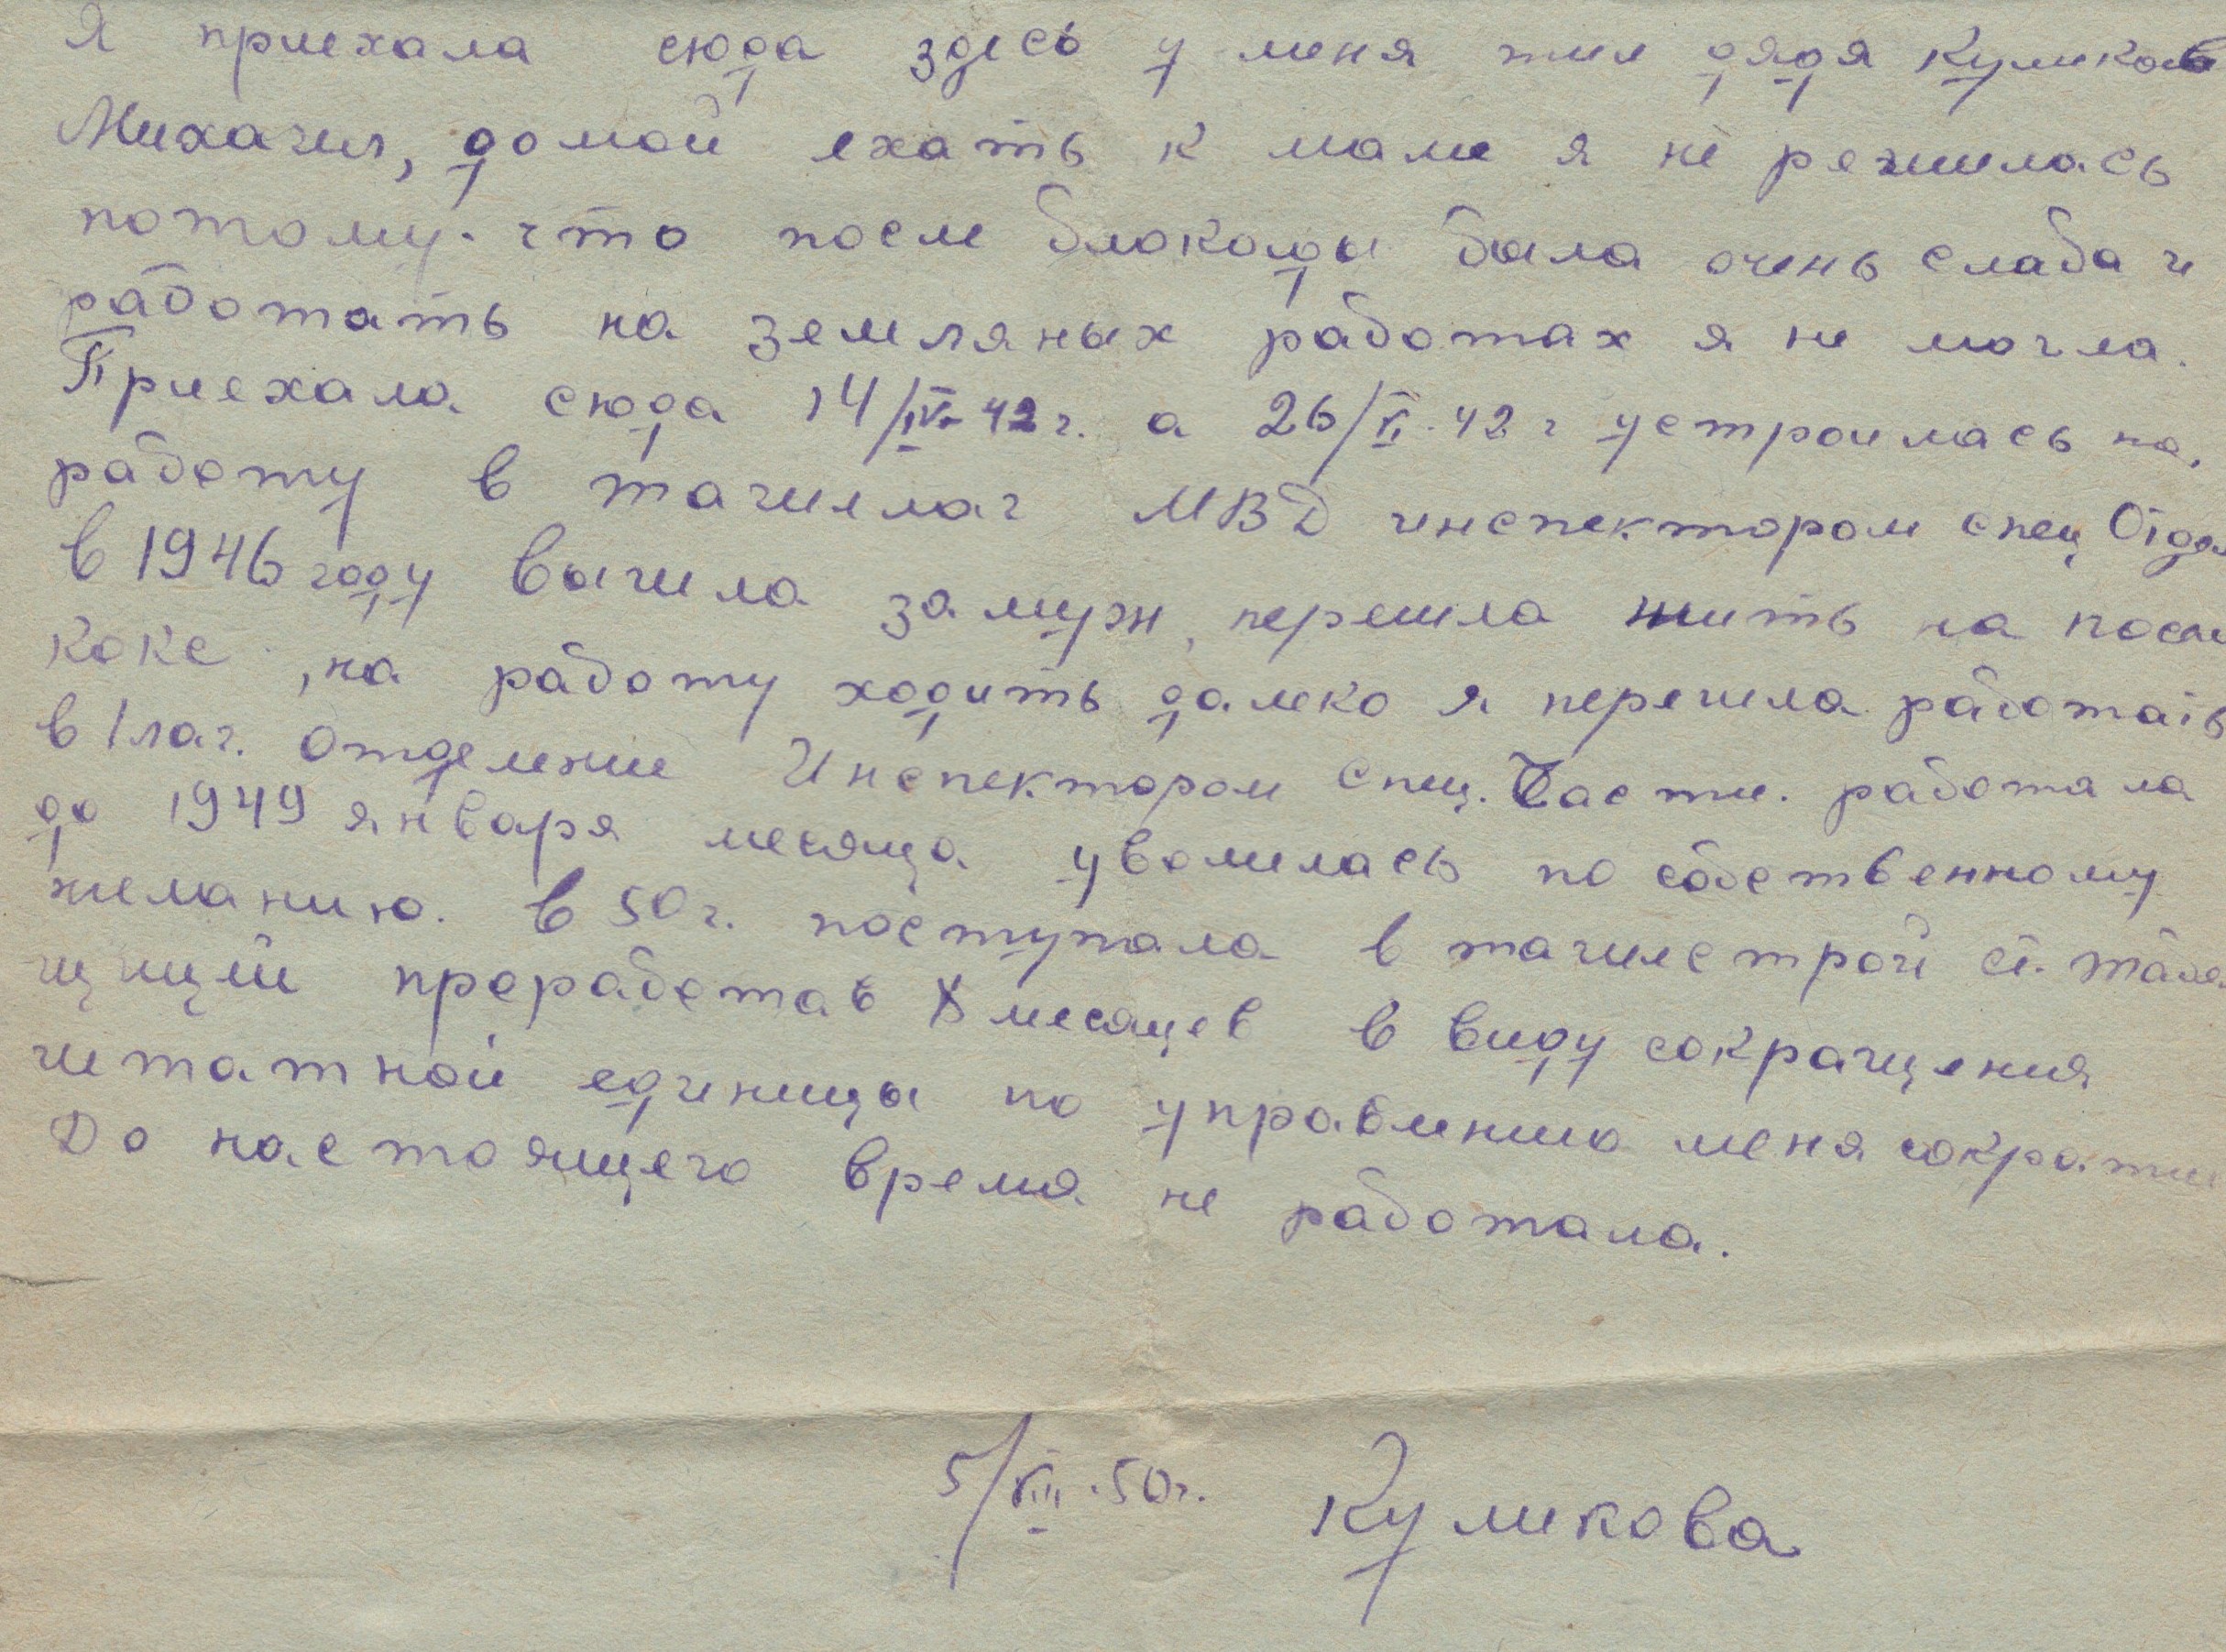 Я приехала сюда здесь у меня жил дядя Куликов
Михаил, домой ехать к маме я не решилась
потому-что после блокады была очень слаба и
работать на земляных работах я не могла.
Приехала сюда 14/IV-42г. а 26/VI.42г устроилась на
работу в тагиллаг МВД инспектором спец Отдел
в 1946 году вышла замуж, перешла жить на
Кокс, на работу ходить далеко я перешла работать
в 1 лаг. отделение Инспектором Спец. Части. работала
до 1949 января месяца уволилась по собственному
желанию. в 50г. поступала в тагилстрой ст.
проработав 8 месяцев в виду сокращения
штатной единицы по управлению меня сократили
До настоящего время не работала.
5/VIII.50г. Куликова